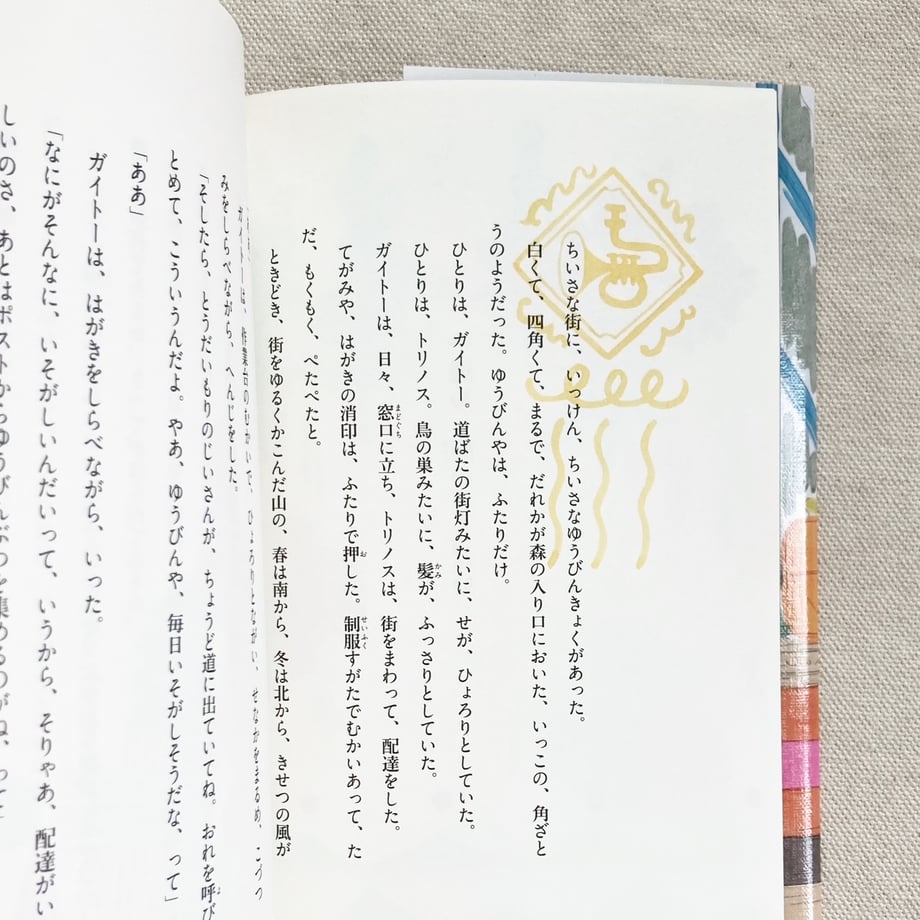 ちいさな街に、いっけん、ちいさなゆうびんきょくがあった。
白くて、四角くて、まるで、だれかが森の入り口においた、いっこの、角ざと
うのようだった。ゆうびんやは、ふたりだけ。
ひとりは、ガイトー。道ばたの街灯みたいに、せが、ひょろりとしていた。
ひとりは、トリノス。鳥の巣みたいに、髪が、ふっさりとしていた。
かみ
ガイトーは、日々、窓口に立ち、トリノスは、街をまわって、配達をした。
まどぐち
てがみや、はがきの消印は、ふたりで押した。制服すがたでむかいあって、た
お
せいふく
だ、もくもく、ぺたぺたと。
ときどき、街をゆるくかこんだ山の、春は南から、冬は北から、きせつの風が
ガイトーは、作業台のむかいで、ひょろりとながい、せなかをまるめ、こづつ
みをしらべながら、へんじをした。
「そしたら、とうだいもりのじいさんが、ちょうど道に出ていてね。おれを呼び
よ
とめて、こういうんだよ。やあ、ゆうびんや、毎日いそがしそうだな、って」
「ああ」
ガイトーは、はがきをしらべながら、いった。
「なにがそんなに、いそがしいんだいって、いうから、そりゃあ、配達がい
しいのさ、あとはポストからゆうびんぶつを集めるのがね、って